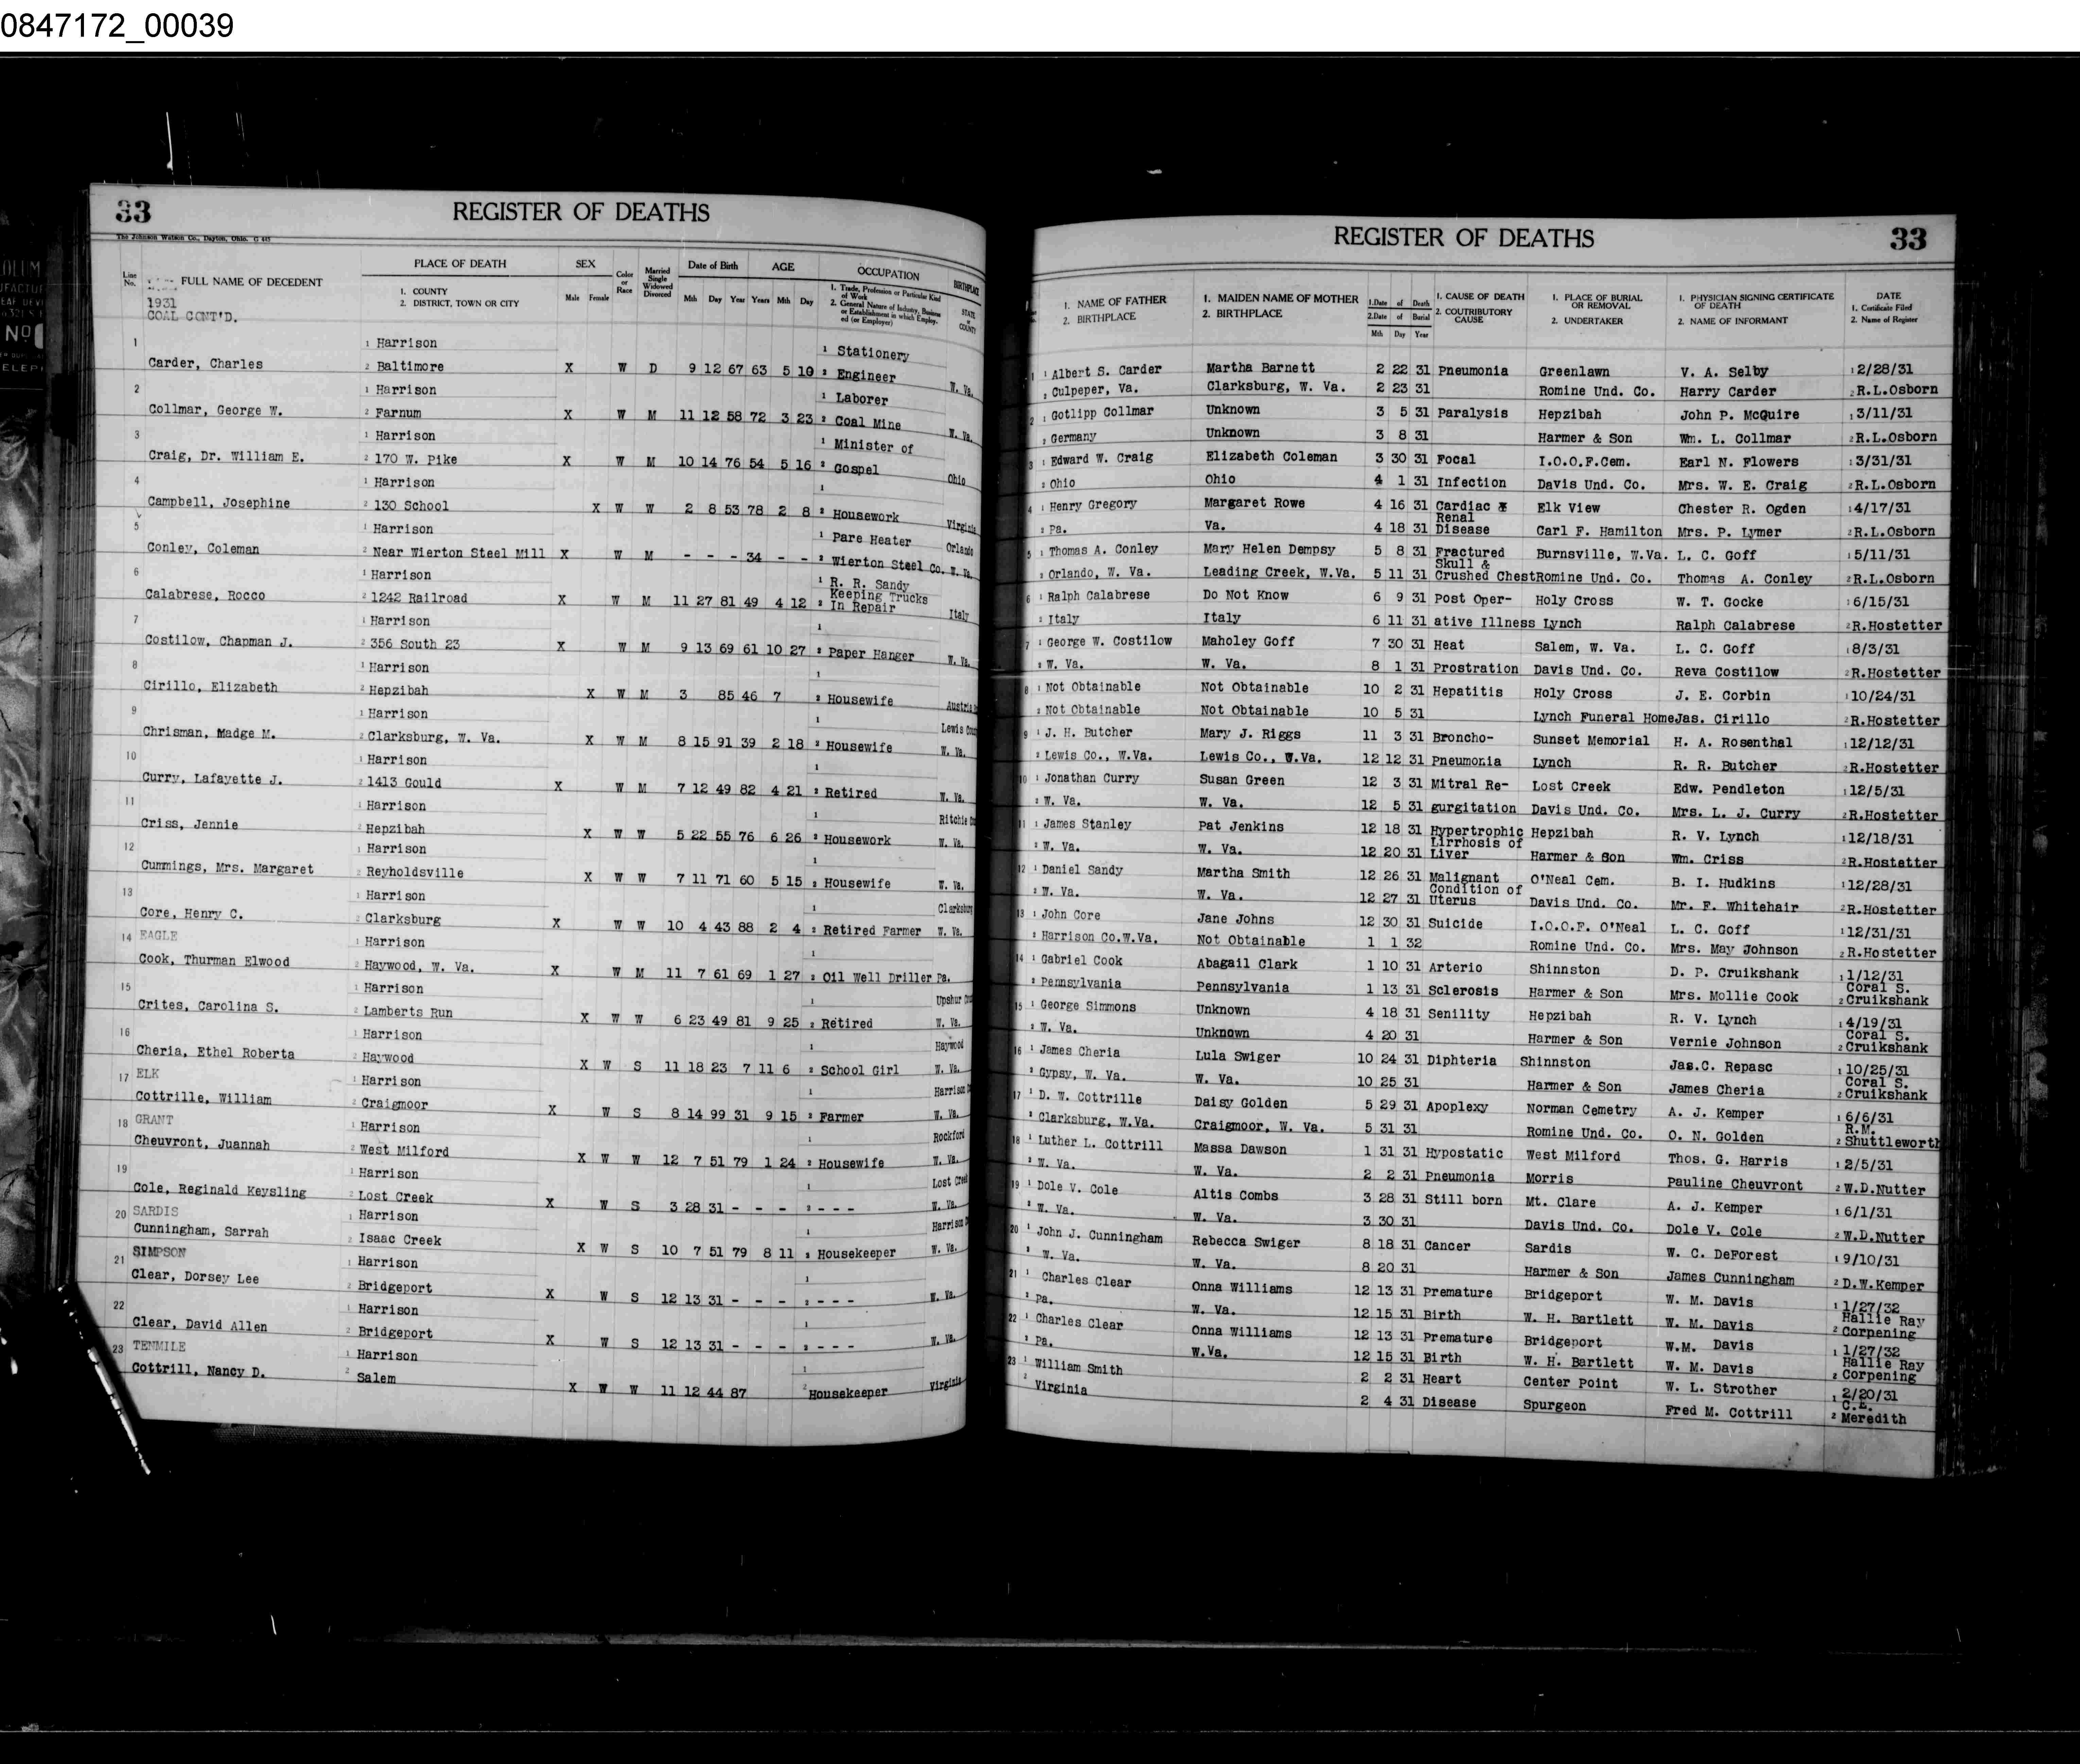 0847172_00039
33
REGISTER OF DEATHS
The Johnson Watson Co., Dayton, Ohio.
Line No.
FULL NAME OF DECEDENT
PLACE OF DEATH
1. COUNTY
2. DISTRICT, TOWN OR CITY
SEX
Male Female
Color or Race
Married Single Widowed Divorced
Date of Birth
Mth Day Year
AGE
Years Mth Day
OCCUPATION
1. Trade, Profession or Particular Kind of Work
2. General Nature of Industry, Business or Establishment in which Employed (or Employer)
BIRTHPLACE
STATE or COUNTY
1931
COAL CONT'D.
1 1 Harrison 1 Stationery
Carder, Charles 2 Baltimore X W D 9 12 67 63 5 10 2 Engineer W. Va.
2 1 Harrison 1 Laborer
Collmar, George W. 2 Farnum X W M 11 12 58 72 3 23 2 Coal Mine W. Va.
3 1 Harrison 1 Minister of
Craig, Dr. William E. 2 170 W. Pike X W M 10 14 76 54 5 16 2 Gospel Ohio
4 1 Harrison 1
Campbell, Josephine 2 130 School X W W 2 8 53 78 2 8 2 Housework Virginia
5 1 Harrison 1 Pare Heater Orlando
Conley, Coleman 2 Near Wierton Steel Mill X W M - - - 34 - - 2 Wierton Steel Co. W. Va.
6 1 Harrison 1 R. R. Sandy
Keeping Trucks
Calabrese, Rocco 2 1242 Railroad X W M 11 27 81 49 4 12 2 In Repair Italy
7 1 Harrison 1
Costilow, Chapman J. 2 356 South 23 X W M 9 13 69 61 10 27 2 Paper Hanger W. Va.
8 1 Harrison 1
Cirillo, Elizabeth 2 Hepzibah X W M 3 85 46 7 2 Housewife Austria
9 1 Harrison 1 Lewis
Chrisman, Madge M. 2 Clarksburg, W. Va. X W M 8 15 91 39 2 18 2 Housewife W. Va.
10 1 Harrison 1
Curry, Lafayette J. 2 1413 Gould X W M 7 12 49 82 4 21 2 Retired W. Va.
11 1 Harrison 1 Ritchie
Criss, Jennie 2 Hepzibah X W W 5 22 55 76 6 26 2 Housework W. Va.
12 1 Harrison 1
Cummings, Mrs. Margaret 2 Reyholdsville X W W 7 11 71 60 5 15 2 Housewife W. Va.
13 1 Harrison 1 Clarksburg
Core, Henry C. 2 Clarksburg X W W 10 4 43 88 2 4 2 Retired Farmer W. Va.
14 EAGLE 1 Harrison 1
Cook, Thurman Elwood 2 Haywood, W. Va. X W M 11 7 61 69 1 27 2 Oil Well Driller Pa.
15 1 Harrison 1 Upshur
Crites, Carolina S. 2 Lamberts Run X W W 6 23 49 81 9 25 2 Retired W. Va.
16 1 Harrison 1 Haywood
Cheria, Ethel Roberta 2 Haywood X W S 11 18 23 7 11 6 2 School Girl W. Va.
17 ELK 1 Harrison 1 Harrison
Cottrille, William 2 Craigmoor X W S 8 14 99 31 9 15 2 Farmer W. Va.
18 GRANT 1 Harrison 1 Rockford
Cheuvront, Juannah 2 West Milford X W W 12 7 51 79 1 24 2 Housewife W. Va.
19 1 Harrison 1 Lost Creek
Cole, Reginald Keysling 2 Lost Creek X W S 3 28 31 - - - 2 - - - W. Va.
20 SARDIS 1 Harrison 1 Harrison
Cunningham, Sarrah 2 Isaac Creek X W S 10 7 51 79 8 11 2 Housekeeper W. Va.
21 SIMPSON 1 Harrison 1
Clear, Dorsey Lee 2 Bridgeport X W S 12 13 31 - - - 2 - - - W. Va.
22 1 Harrison 1
Clear, David Allen 2 Bridgeport X W S 12 13 31 - - - 2 - - - W. Va.
23 TENMILE 1 Harrison 1
Cottrill, Nancy D. 2 Salem X W W 11 12 44 87 2 Housekeeper Virginia
REGISTER OF DEATHS
33
1. NAME OF FATHER
2. BIRTHPLACE
1. MAIDEN NAME OF MOTHER
2. BIRTHPLACE
1.Date of Death
2.Date of Burial
Mth Day Year
1. CAUSE OF DEATH
2. COUTRIBUTORY CAUSE
1. PLACE OF BURIAL OR REMOVAL
2. UNDERTAKER
1. PHYSICIAN SIGNING CERTIFICATE OF DEATH
2. NAME OF INFORMANT
DATE
1. Certificate Filed
2. Name of Register
1 1 Albert S. Carder Martha Barnett 2 22 31 Pneumonia Greenlawn V. A. Selby 1 2/28/31
2 Culpeper, Va. Clarksburg, W. Va. 2 23 31 Romine Und. Co. Harry Carder 2 R.L.Osborn
2 1 Gotlipp Collmar Unknown 3 5 31 Paralysis Hepzibah John P. McQuire 1 3/11/31
2 Germany Unknown 3 8 31 Harmer & Son Wm. L. Collmar 2 R.L.Osborn
3 1 Edward W. Craig Elizabeth Coleman 3 30 31 Focal I.O.O.F.Cem. Earl N. Flowers 1 3/31/31
2 Ohio Ohio 4 1 31 Infection Davis Und. Co. Mrs. W. E. Craig 2 R.L.Osborn
4 1 Henry Gregory Margaret Rowe 4 16 31 Cardiac & Elk View Chester R. Ogden 1 4/17/31
Renal
2 Pa. Va. 4 18 31 Disease Carl F. Hamilton Mrs. P. Lymer 2 R.L.Osborn
5 1 Thomas A. Conley Mary Helen Dempsy 5 8 31 Fractured Burnsville, W.Va. L. C. Goff 1 5/11/31
Skull &
2 Orlando, W. Va. Leading Creek, W.Va. 5 11 31 Crushed Chest Romine Und. Co. Thomas A. Conley 2 R.L.Osborn
6 1 Ralph Calabrese Do Not Know 6 9 31 Post Oper- Holy Cross W. T. Gocke 1 6/15/31
2 Italy Italy 6 11 31 ative Illness Lynch Ralph Calabrese 2 R.Hostetter
7 1 George W. Costilow Maholey Goff 7 30 31 Heat Salem, W. Va. L. C. Goff 1 8/3/31
2 W. Va. W. Va. 8 1 31 Prostration Davis Und. Co. Reva Costilow 2 R.Hostetter
8 1 Not Obtainable Not Obtainable 10 2 31 Hepatitis Holy Cross J. E. Corbin 1 10/24/31
2 Not Obtainable Not Obtainable 10 5 31 Lynch Funeral Home Jas. Cirillo 2 R.Hostetter
9 1 J. H. Butcher Mary J. Riggs 11 3 31 Broncho- Sunset Memorial H. A. Rosenthal 1 12/12/31
2 Lewis Co., W.Va. Lewis Co., W.Va. 12 12 31 Pneumonia Lynch R. R. Butcher 2 R.Hostetter
10 1 Jonathan Curry Susan Green 12 3 31 Mitral Re- Lost Creek Edw. Pendleton 1 12/5/31
2 W. Va. W. Va. 12 5 31 gurgitation Davis Und. Co. Mrs. L. J. Curry 2 R.Hostetter
11 1 James Stanley Pat Jenkins 12 18 31 Hypertrophic Hepzibah R. V. Lynch 1 12/18/31
Lirrhosis of
2 W. Va. W. Va. 12 20 31 Liver Harmer & Son Wm. Criss 2 R.Hostetter
12 1 Daniel Sandy Martha Smith 12 26 31 Malignant O'Neal Cem. B. I. Hudkins 1 12/28/31
Condition of
2 W. Va. W. Va. 12 27 31 Uterus Davis Und. Co. Mr. F. Whitehair 2 R.Hostetter
13 1 John Core Jane Johns 12 30 31 Suicide I.O.O.F. O'Neal L. C. Goff 1 12/31/31
2 Harrison Co.W.Va. Not Obtainable 1 1 32 Romine Und. Co. Mrs. May Johnson 2 R.Hostetter
14 1 Gabriel Cook Abagail Clark 1 10 31 Arterio Shinnston D. P. Cruikshank 1 1/12/31
Coral S.
2 Pennsylvania Pennsylvania 1 13 31 Sclerosis Harmer & Son Mrs. Mollie Cook 2 Cruikshank
15 1 George Simmons Unknown 4 18 31 Senility Hepzibah R. V. Lynch 1 4/19/31
Coral S.
2 W. Va. Unknown 4 20 31 Harmer & Son Vernie Johnson 2 Cruikshank
16 1 James Cheria Lula Swiger 10 24 31 Diphteria Shinnston Jas.C. Repasc 1 10/25/31
Coral S.
2 Gypsy, W. Va. W. Va. 10 25 31 Harmer & Son James Cheria 2 Cruikshank
17 1 D. W. Cottrille Daisy Golden 5 29 31 Apoplexy Norman Cemetry A. J. Kemper 1 6/6/31
R.M.
2 Clarksburg, W.Va. Craigmoor, W. Va. 5 31 31 Romine Und. Co. O. N. Golden 2 Shuttleworth
18 1 Luther L. Cottrill Massa Dawson 1 31 31 Hypostatic West Milford Thos. G. Harris 1 2/5/31
2 W. Va. W. Va. 2 2 31 Pneumonia Morris Pauline Cheuvront 2 W.D.Nutter
19 1 Dole V. Cole Altis Combs 3 28 31 Still born Mt. Clare A. J. Kemper 1 6/1/31
2 W. Va. W. Va. 3 30 31 Davis Und. Co. Dole V. Cole 2 W.D.Nutter
20 1 John J. Cunningham Rebecca Swiger 8 18 31 Cancer Sardis W. C. DeForest 1 9/10/31
2 W. Va. W. Va. 8 20 31 Harmer & Son James Cunningham 2 D.W.Kemper
21 1 Charles Clear Onna Williams 12 13 31 Premature Bridgeport W. M. Davis 1 1/27/32
Hallie Ray
2 Pa. W. Va. 12 15 31 Birth W. H. Bartlett W. M. Davis 2 Corpening
22 1 Charles Clear Onna Williams 12 13 31 Premature Bridgeport W.M. Davis 1 1/27/32
Hallie Ray
2 Pa. W.Va. 12 15 31 Birth W. H. Bartlett W. M. Davis 2 Corpening
23 1 William Smith 2 2 31 Heart Center Point W. L. Strother 1 2/20/31
2 Virginia 2 4 31 Disease Spurgeon Fred M. Cottrill 2 Meredith